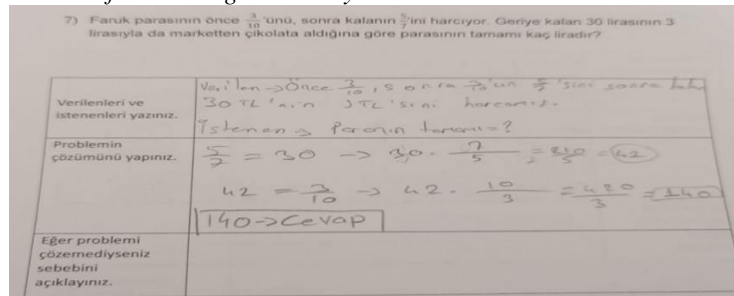 7) Faruk parasının önce 3/10 'ünü, sonra kalanın 5/7'ini harcıyor. Geriye kalan 30 lirasının 3
lirasıyla da marketten çikolata aldığına göre parasının tamamı kaç liradır?
Verilenleri ve
istenenleri yazınız.
Verilen → Önce 3/10, sonra 3/10'un 5/7'sini sonra
30 TL'nin 3TL'sini harcamış.
İstenen → Paranın tamamı = ?
Problemin
çözümünü yapınız.
5/7 = 30 → 30 . 7/5 = 210/5 = 42
42 = 3/10 → 42 . 10/3 = 420/3 = 140
140 → Cevap
Eğer problemi
çözemediyseniz
sebebini
açıklayınız.